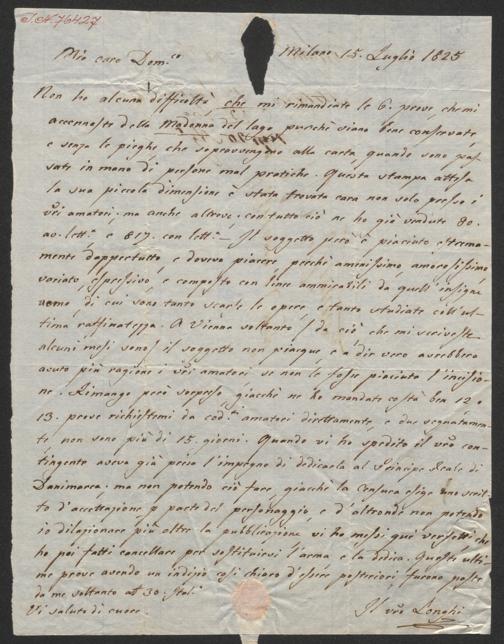 I.N. 76427
Milano 15. Luglio 1825
Mio caro Dom.co
Non ho alcuna difficoltà che mi rimandiate le 6. prove che mi
accennaste della Madonna del lago purchè siano bene conservate
e senza le pieghe che sopravvengono alla carta quando sono pas-
sate in mano di persone mal pratiche. Questa stampa attesa
la sua piccola dimensione è stata trovata cara non solo presso i
vri amatori, ma anche altrove. con tutto ciò ne ho già vendute 80.
av. lett.e e 817. con lett.e — Il soggetto però è piaciuto estrema-
mente dappertutto e doveva piacere perchè amenissimo amorosissimo
variato, espressivo, e composto con linee ammirabili da quell'insigne
uomo, di cui sono tanto scarse le opere e tanto studiate coll'ul-
tima raffinatezza. A Vienna soltanto (da ciò che mi scriveste
alcuni mesi sono) il soggetto non piacque e a dir vero avrebbero
avuto più ragione i vri amatori se non le fosse piaciuta l'incisio-
ne. Rimango però sorpreso giacchè ne ho mandato costà ben 12 o
13. prove richiestemi da cod.ti amatori direttamente, e due segnatamen-
te non sono più di 15. giorni. Quando vi ho spedito il vro con-
tingente aveva già preso l'impegno di dedicarla al Principe Reale di
Danimarca. ma non potendo ciò fare, giacchè la censura esige uno scrit-
to d'accettazione p parte del personaggio e d'altronde non potendo
io dilazionare più oltre la pubblicazione vi ho messi que' versetti che
ho poi fatti cancellare per sostituirvi l'arma e la dedica. Queste ulti-
me prove avendo un indizio così chiaro d'essere posteriori furono poste
da me soltanto a 30. Ital.
Vi saluto di cuore.
Il vro Longhi